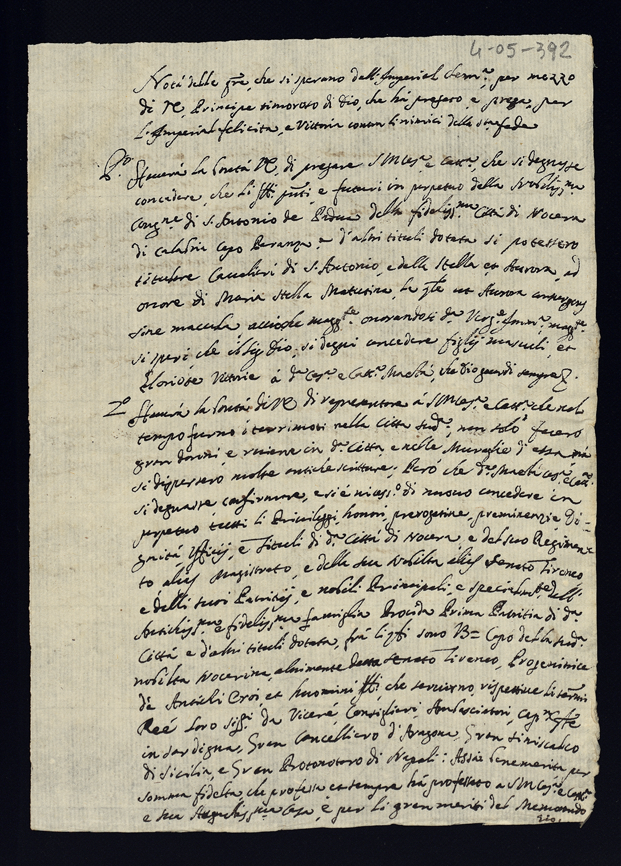 4-05-392
Nota delle gre, che si sperano dall'Imperial Clem.a, per mezzo
di VE, Principe timorato di Dio, che ha pregato, e prega, per
l'Imperial felicità, e Vittoria contro l'inimici della sta fede
P.o Haverà la bontà VE, di pregare S M Ces.a e Catt.a, che si degnasse
concedere, che li ppti, e futuri in perpetuo della Nobiliss.ma
Cong.ne di S. Antonio de Padua della fideliss.ma Città di Nocera
di Calabria Capo d'altri tituli dotata si potessero
titulare Cavalieri di S. Antonio, e della Stella et Aurora, ad
onore di Maria Stella Matutina, la qle est Aurora consurgens
sine macula acciòche onorandosi da
si speri che Iddio, si degni concedere figlij masculi, et
Gloriose Vittorie à d.a Ces.a e Catt.a Maestà, che Dio guardi sempre
2.o Haverà la bontà di VE di representare à S M Ces.a e Catt.a che nel
tempo furno i terrimoti nella Città sud.a, non solo fecero
gran danni, e ruiene in d.a Città, e nelle Muraglie d'essa mà
si dispersero molte antiche scritture; Però che d.a Maestà Ces.a e Catt.a
si degnasse confirmare, e si è di nuovo concedere in
perpetuo tutti li Privileggi, honori, prerogative, preminenzie Di-
gnità, Ufficij, e Tituli di d.a Città di Nocera e del suo Regimen-
to aliàs Magistrato, e della sua Nobiltà aliàs Senato Tireneo
e delli suoi Patritij, e nobili Principali; e specialm.te dell'
Antichiss.ma e fideliss.ma famiglia Procida Prima Patritia di d.a
Città e d'altri tituli dotata, frà li qli sono Capo della sud.a
nobiltà Nocerina, altrimente Senato Tireneo, Progenitrice
de Antichi Eroi, et huomini che servirno, rispettive li
Reè loro da Vicerè Consiglieri Ambasciatori, Cap.n
in Sardigna, Gran Cancelliero d'Aragona Gran Siniscalco
di Sicilia, e Gran Protonotaro di Napoli: Assai benemerita per
somma fideltà che professa et sempre hà professato a S M Ces.a e Catt.a
e sua Augustiss.ma Casa, e per li gran meriti del